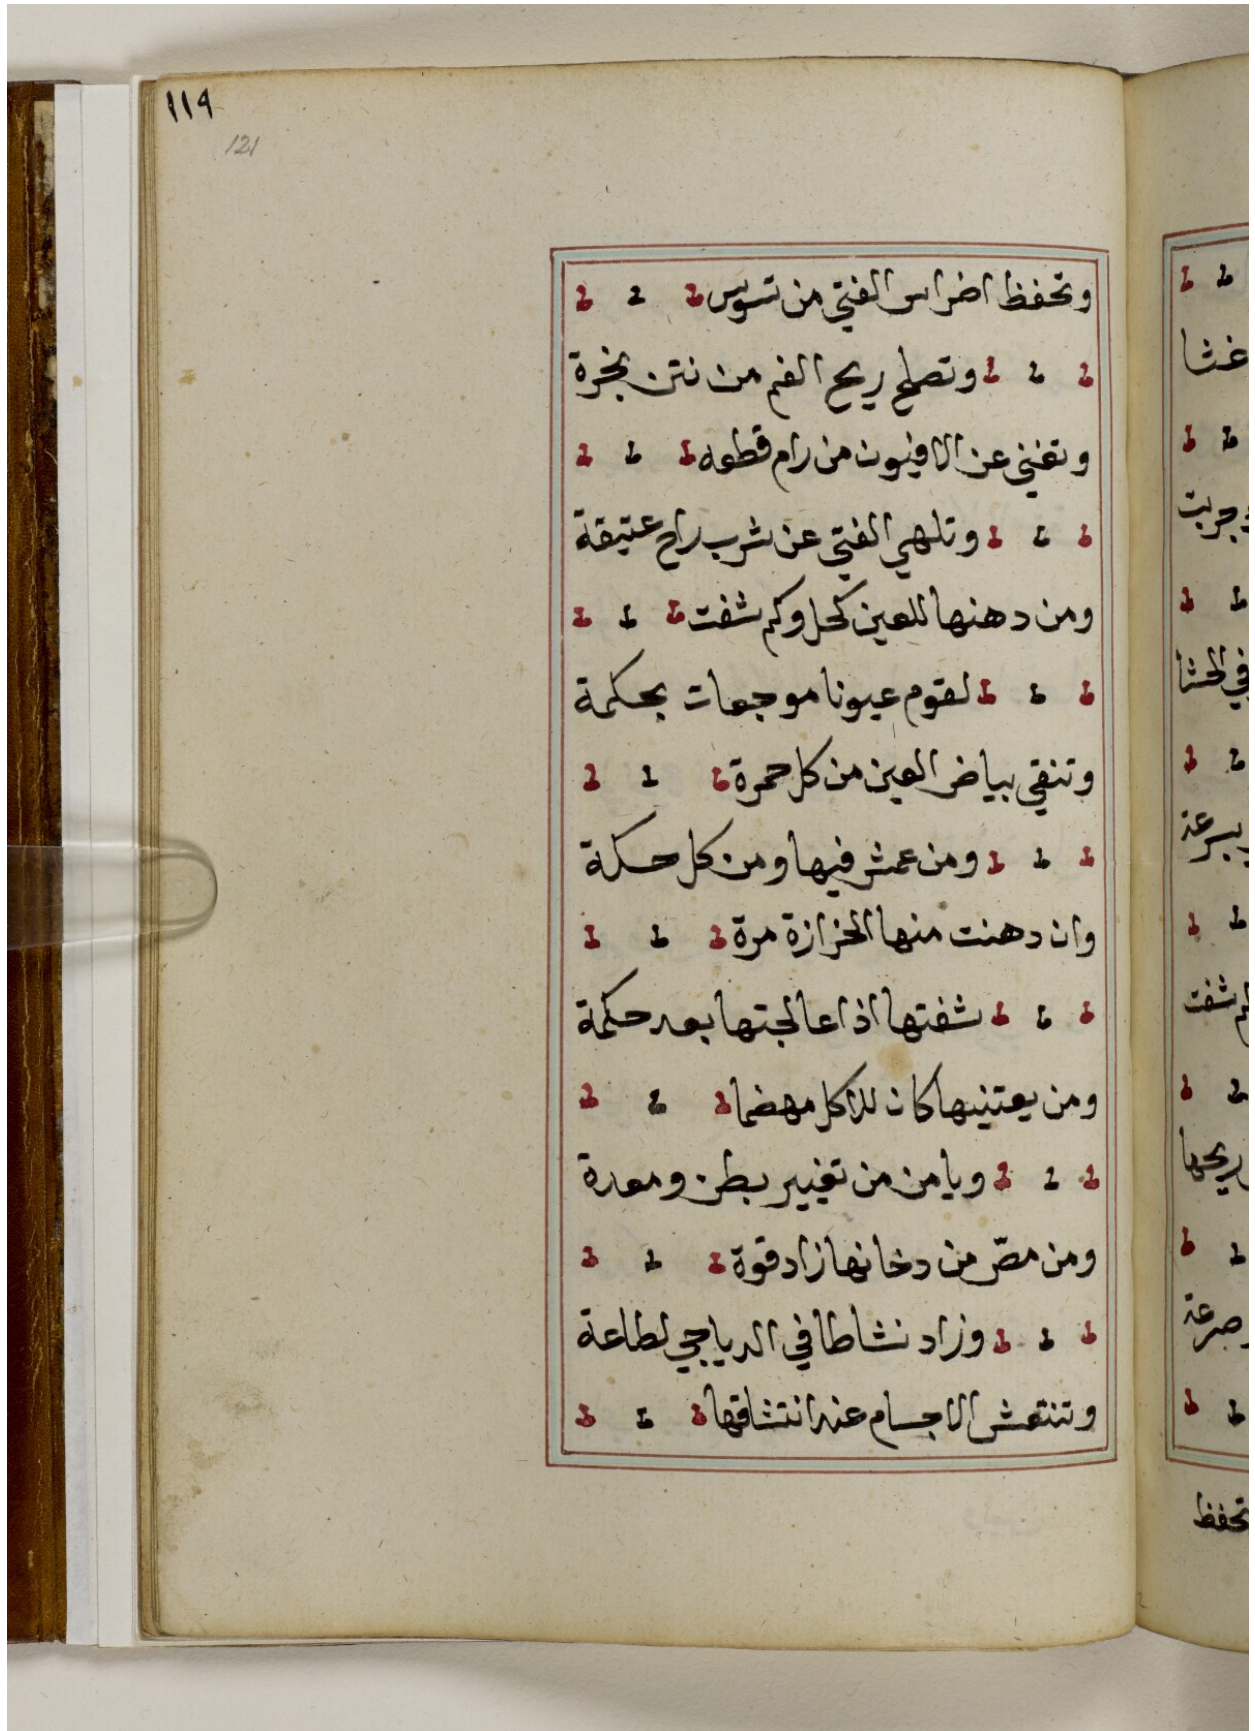 ١١٩
121
وتحفظ اضراس الفتى من تسويس
وتصلح ريح الفم من نتن بخرة
وتغني عن الافيون من رام قطعه
وتلهي الفتى عن شرب راح عتيقة
ومن دهنها للعين كحل وكم شفت
لقوم عيونا موجعات بحكمة
وتنقي بياض العين من كل حمرة
ومن عمش فيها ومن كل حكة
وان دهنت منها الحزازة مرة
شفتها اذا عالجتها بعد حكمة
ومن يعتنيها كان للاكل مهضما
ويامن من تغيير بطن ومعدة
ومن مصّ من دخانها زاد قوة
وزاد نشاطا في الدياجي لطاعة
وتنتعش الاجسام عند انتشاقها
غثا
وجربت
في الحشا
بسرعة
كم شفت
ريحها
صرعة
تحفظ